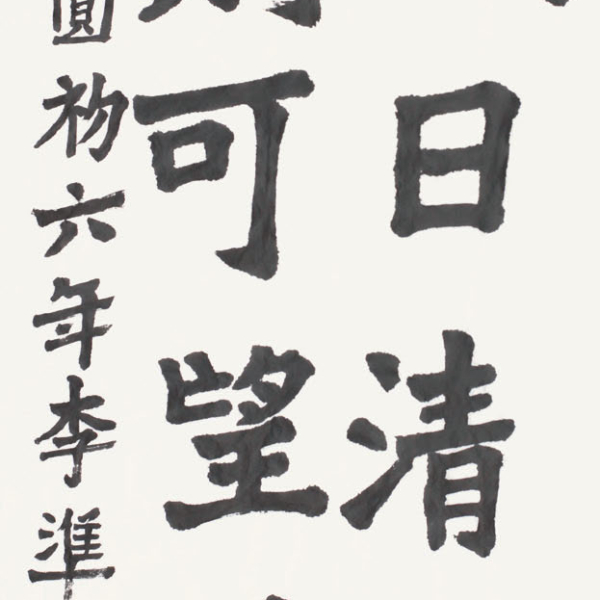 日清
可望
圓初六年李準